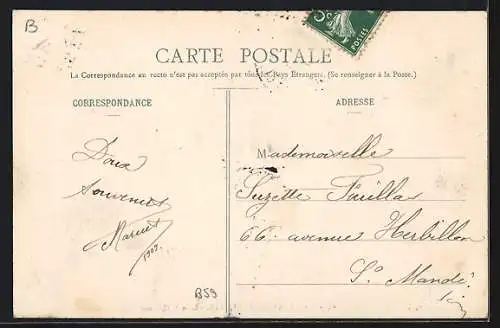 B
5
POSTES
CARTE POSTALE
La Correspondance au recto n'est pas acceptée par tous les Pays Etrangers. (Se renseigner à la Poste.)
CORRESPONDANCE
ADRESSE
Doux
souvenirs
1909.
Mademoiselle
Suzette
66 avenue Herbillon
St Mandé
B59